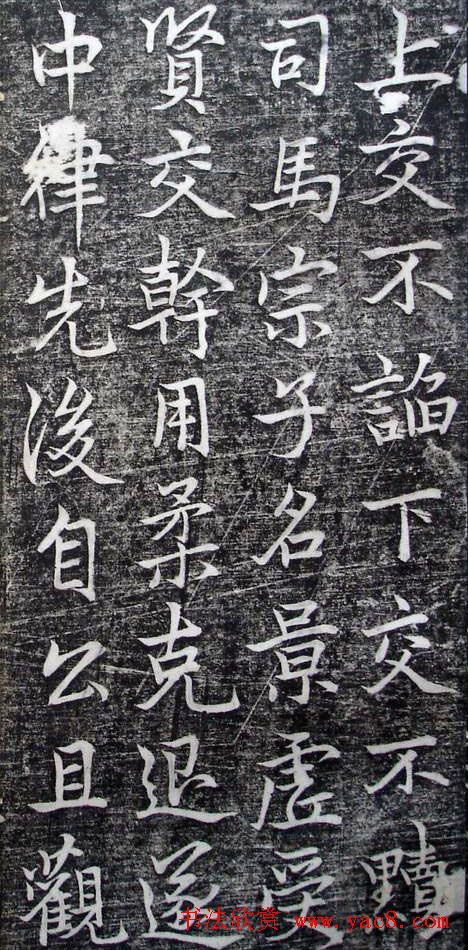 上交不諂下交不黷
司馬宗子名景虛受
賢交幹用柔克退
中律先後自公且觀
书法欣赏 www.yac8.com